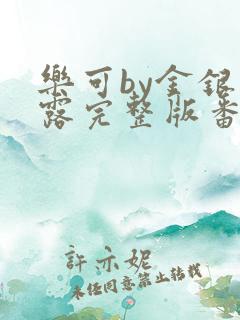 樂可by金銀
露完整版番
許亦妮
未經同意禁止轉載